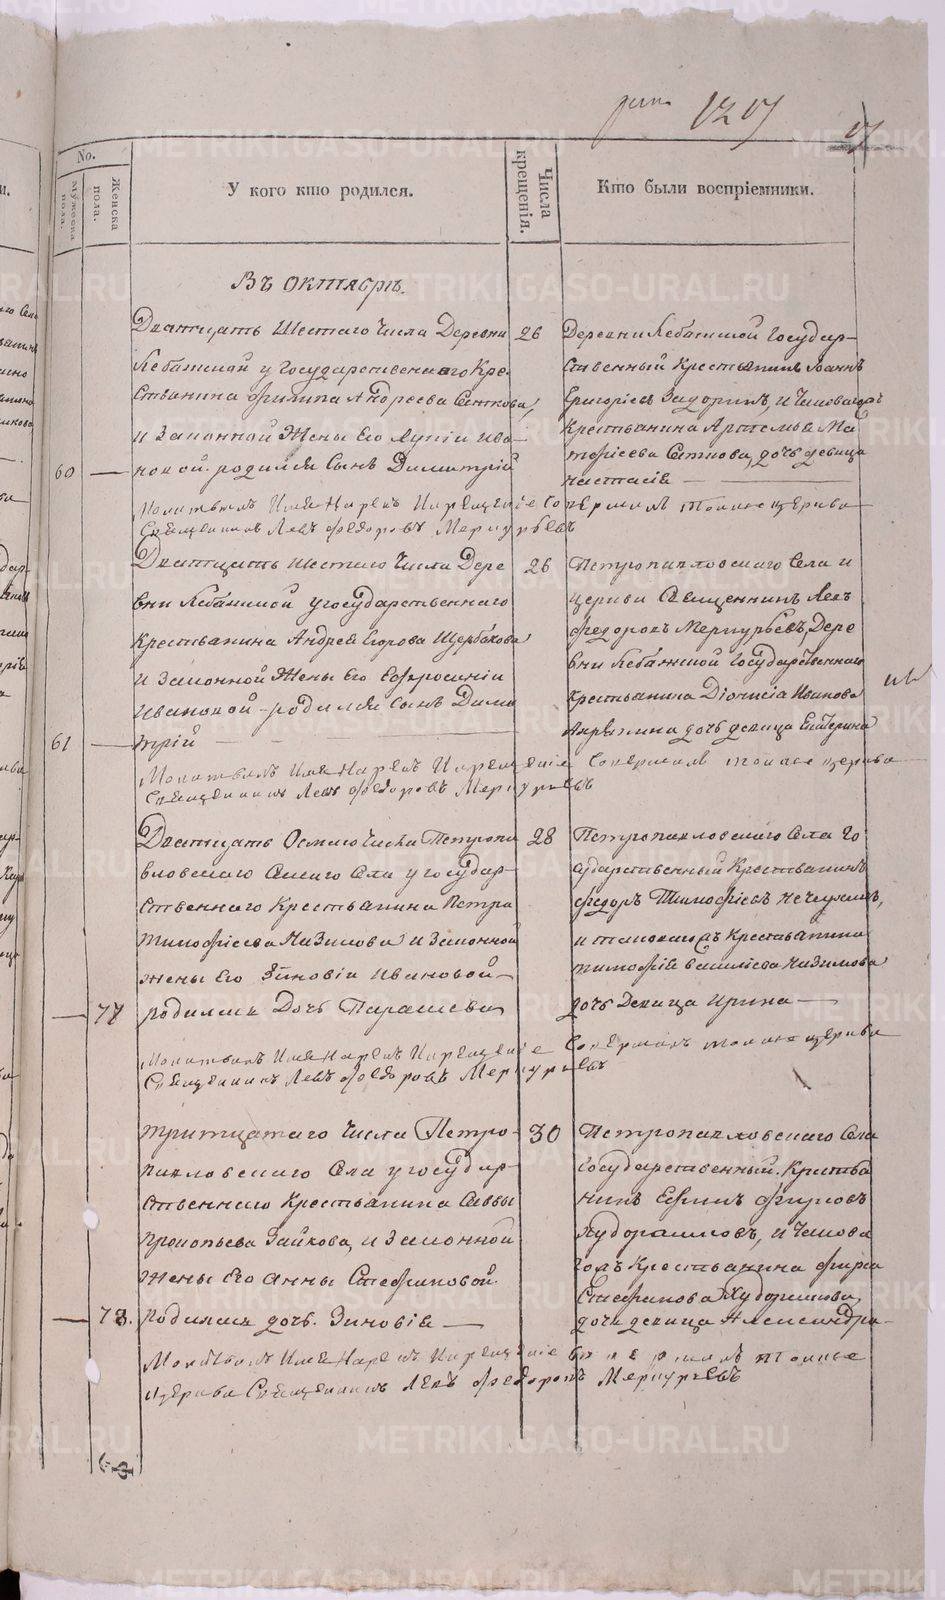 1217
17
No.
Мужеска пола.
Женска пола.
У кого кто родился.
Числа крещенія.
Кто были воспріемники.
Въ октябрѣ.
Дватцать Шестаго Числа Деревни
Лебяжной у Государственнаго Кре
стьянина Филипа Андреева Ситкова,
и Законной Жены Его Лукіи Ива-
60 — новой родился Сынъ Димитрій
26
Деревни Лебяжной Государ-
ственный Крестьянинъ Іоаннъ
Григоріевъ Задоринъ, и Таковагожъ
Крестьянина Артемья Ма
тфіева Ситкова, дочь девица
Настасія —
Молитвилъ Имя Нарекъ И Крещеніе Совершилъ тояже церкви
Священникъ Левъ Федоровъ Меркурьевъ
Дватцать шестаго Числа Дере
вни Лебяжной у государственнаго
крестьянина Андрея Егорова Щербакова
И Законной Жены Его Евфросиніи
Ивановой родился Сынъ Дими
61 — трій —
26
Петропавловскаго Села и
церкви Священникъ Левъ
Федоровъ Меркурьевъ, Дере
вни Лебяжной Государственнаго
крестьянина Діонисія Иванова
дочь девица Екатерина
Молитвилъ Имя Нарекъ И Крещеніе Совершилъ тояже церкви
Священникъ Левъ Федоровъ Меркурьевъ
Дватцать Осмаго Числа Петропа
вловскаго Самаго Села у государ-
ственнаго Крестьянина Петра
Тимофіева Казимова и Законной
жены Его Зиновіи Ивановой
— 77 родилась Дочь Параскева
28
Петропавловскаго Села Го
сударственный Крестьянинъ
Федоръ Тимофіевъ
и таковагожъ Крестьянина
Тимофія Василіева Казимова
дочь Девица Ирина —
Молитвилъ Имя Нарекъ И Крещеніе Совершилъ тояже церкви
Священникъ Левъ Федоровъ Меркурьевъ
тритцатаго Числа Петро-
павловскаго Села у государ-
ственнаго Крестьянина Саввы
Прокопьева Зайкова, и Законной
жены Его Анны Стефановой
— 78. родилась дочь Зиновія —
30
Петропавловскаго Села
Государственный Крестья
нинъ Ефимъ Фирсовъ
Худорашковъ, и Такова
гожъ Крестьянина Фирса
Стефанова Худорашкова,
дочь девица Александра
Молитвилъ Имя Нарекъ И Крещеніе Совершилъ тояже
церкви Священникъ Левъ Федоровъ Меркурьевъ
METRIKI.GASO-URAL.RU